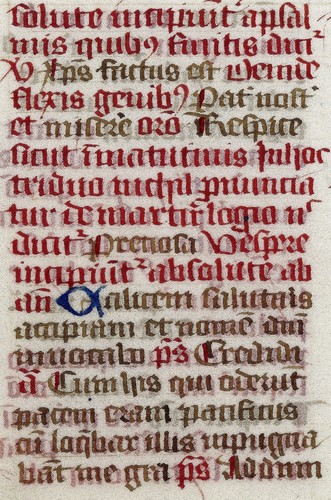 solute incipiūt᷑ a psal
mis quibꝯ finitis dicit᷑
℣ xp̄s factus est Deinde
flexis genibꝯ Pat᷑ nost᷑
et miserere oro Respice
sicut ī matutinis In hoc
triduo nichil pronuncia
tur de martirilogio n̄
dicit᷑ Preciosa Vespere
incipiūt᷑ absolute ab
an̄ Calicem salutaris
accipiam et nomē dn̄i
inuocabo p̄s Credidi
a᷑ Cum hiis qui oderūt
pacem eram pacificus
cū loq̄bar illis inpugna
bāt me gratis p̄s Ad dn̄m